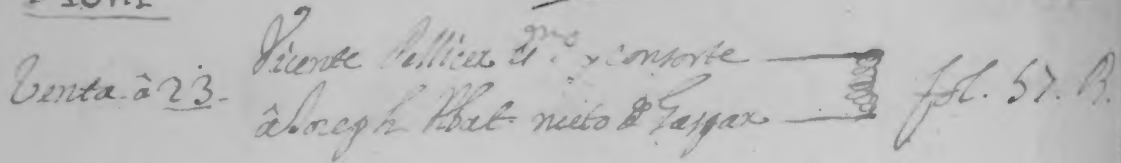 Venta â 23. Vicente Pellicer y consorte
â Joseph Abat nieto de Gaspar fol. 57. B.